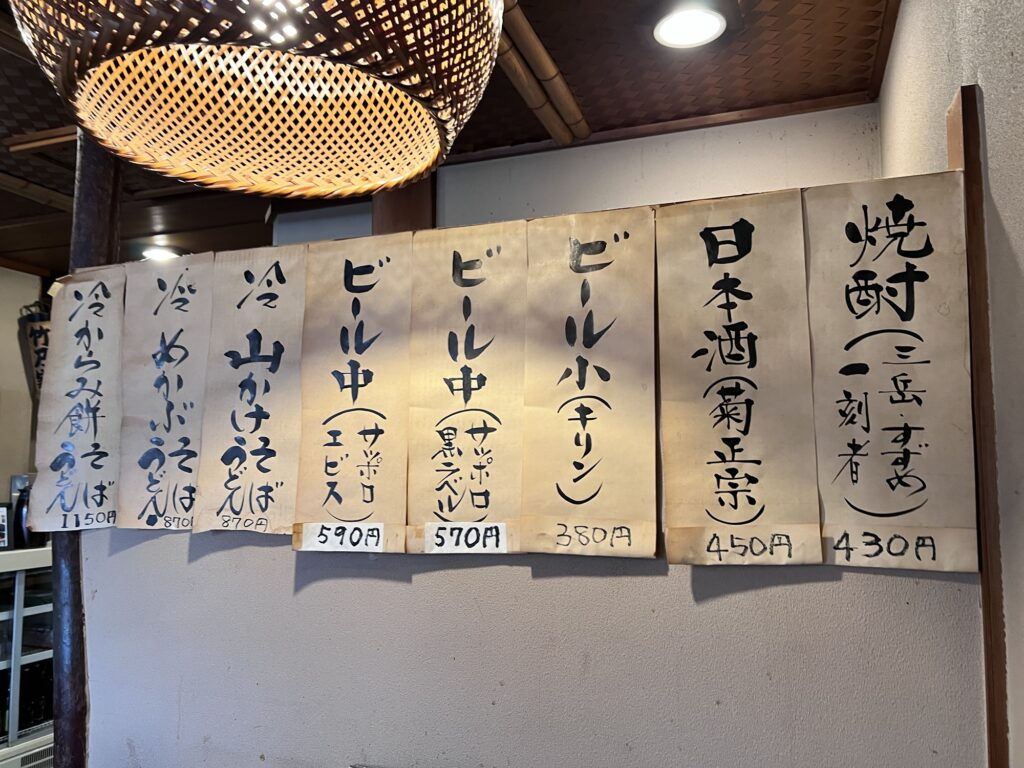 焼酎(三岳・すずめ
一刻者)
430円
日本酒(菊正宗)
450円
ビール小(キリン)
380円
ビール中(サッポロ
黒ラベル)
570円
ビール中(サッポロ
エビス)
590円
冷 山かけそば
うどん
870円
冷 めかぶそば
うどん
870
冷からみ餅そば
うどん
1150円